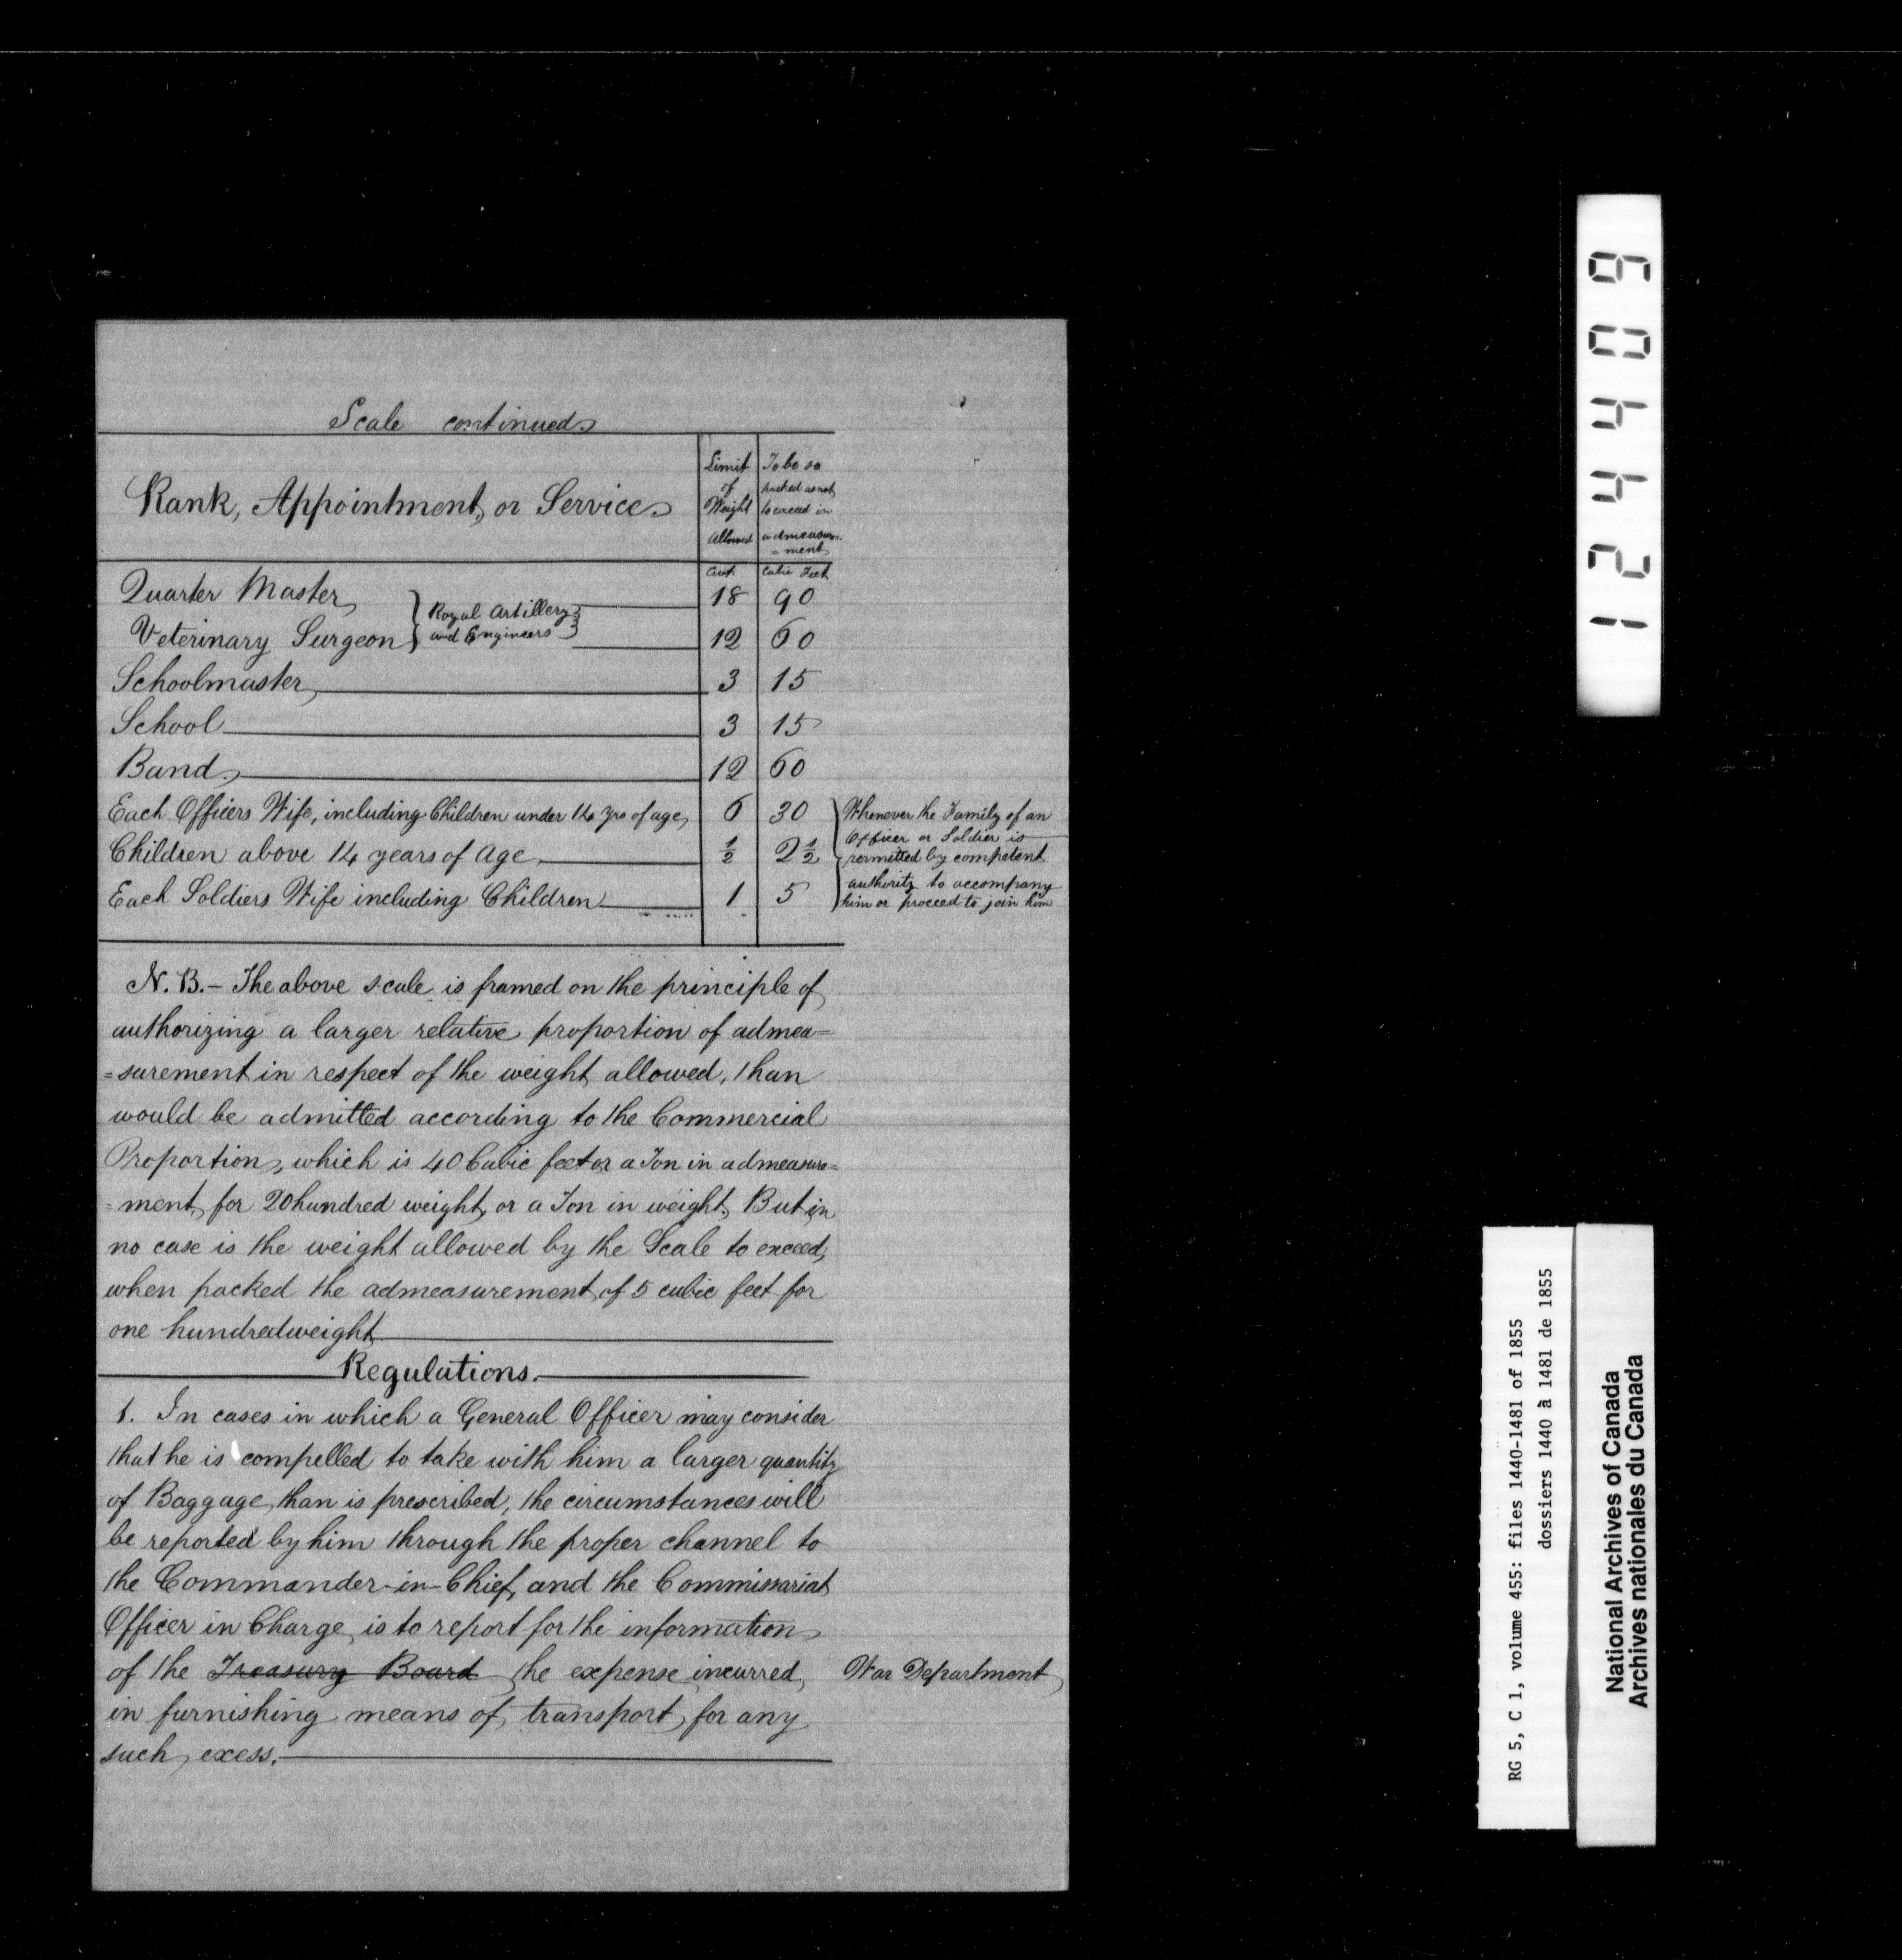 Scale continued
Rank, Appointment, or Service.
Limit of Weight Allowed
To be so packed as not to exceed in admeasure=
=ment
Cwt. Cubic Feet
Quarter Master } Royal Artillery 18 90
Veterinary Surgeon } and Engineers 12 60
Schoolmaster 3 15
School 3 15
Band 12 60
Each Officers Wife, including Children under 14 yrs of age, 6 30
Children above 14 years of Age 1/2 2 1/2
Each Soldiers Wife including Children 1 5
Whenever the Family of an
Officer or Soldier is
permitted by competent
authority to accompany
him or proceed to join him
N.B.- The above scale is framed on the principle of
authorizing a larger relative proportion of admea=
=surement in respect of the weight allowed, than
would be admitted according to the Commercial
Proportion, which is 40 Cubic feet or a Ton in admeasure=
=ment, for 20 hundred weight, or a Ton in weight. But in
no case is the weight allowed by the Scale to exceed,
when packed the admeasurement, of 5 cubic feet for
one hundredweight
Regulations.
1. In cases in which a General Officer may consider
that he is compelled to take with him a larger quantity
of Baggage, than is prescribed, the circumstances will
be reported by him through the proper channel to
the Commander-in-Chief, and the Commissariat
Officer in Charge, is to report for the information
of the Treasury Board the expense incurred, War Department
in furnishing means of transport, for any
such exess.
124409
RG 5, C 1, volume 455: files 1440-1481 of 1855
dossiers 1440 à 1481 de 1855
National Archives of Canada
Archives nationales du Canada